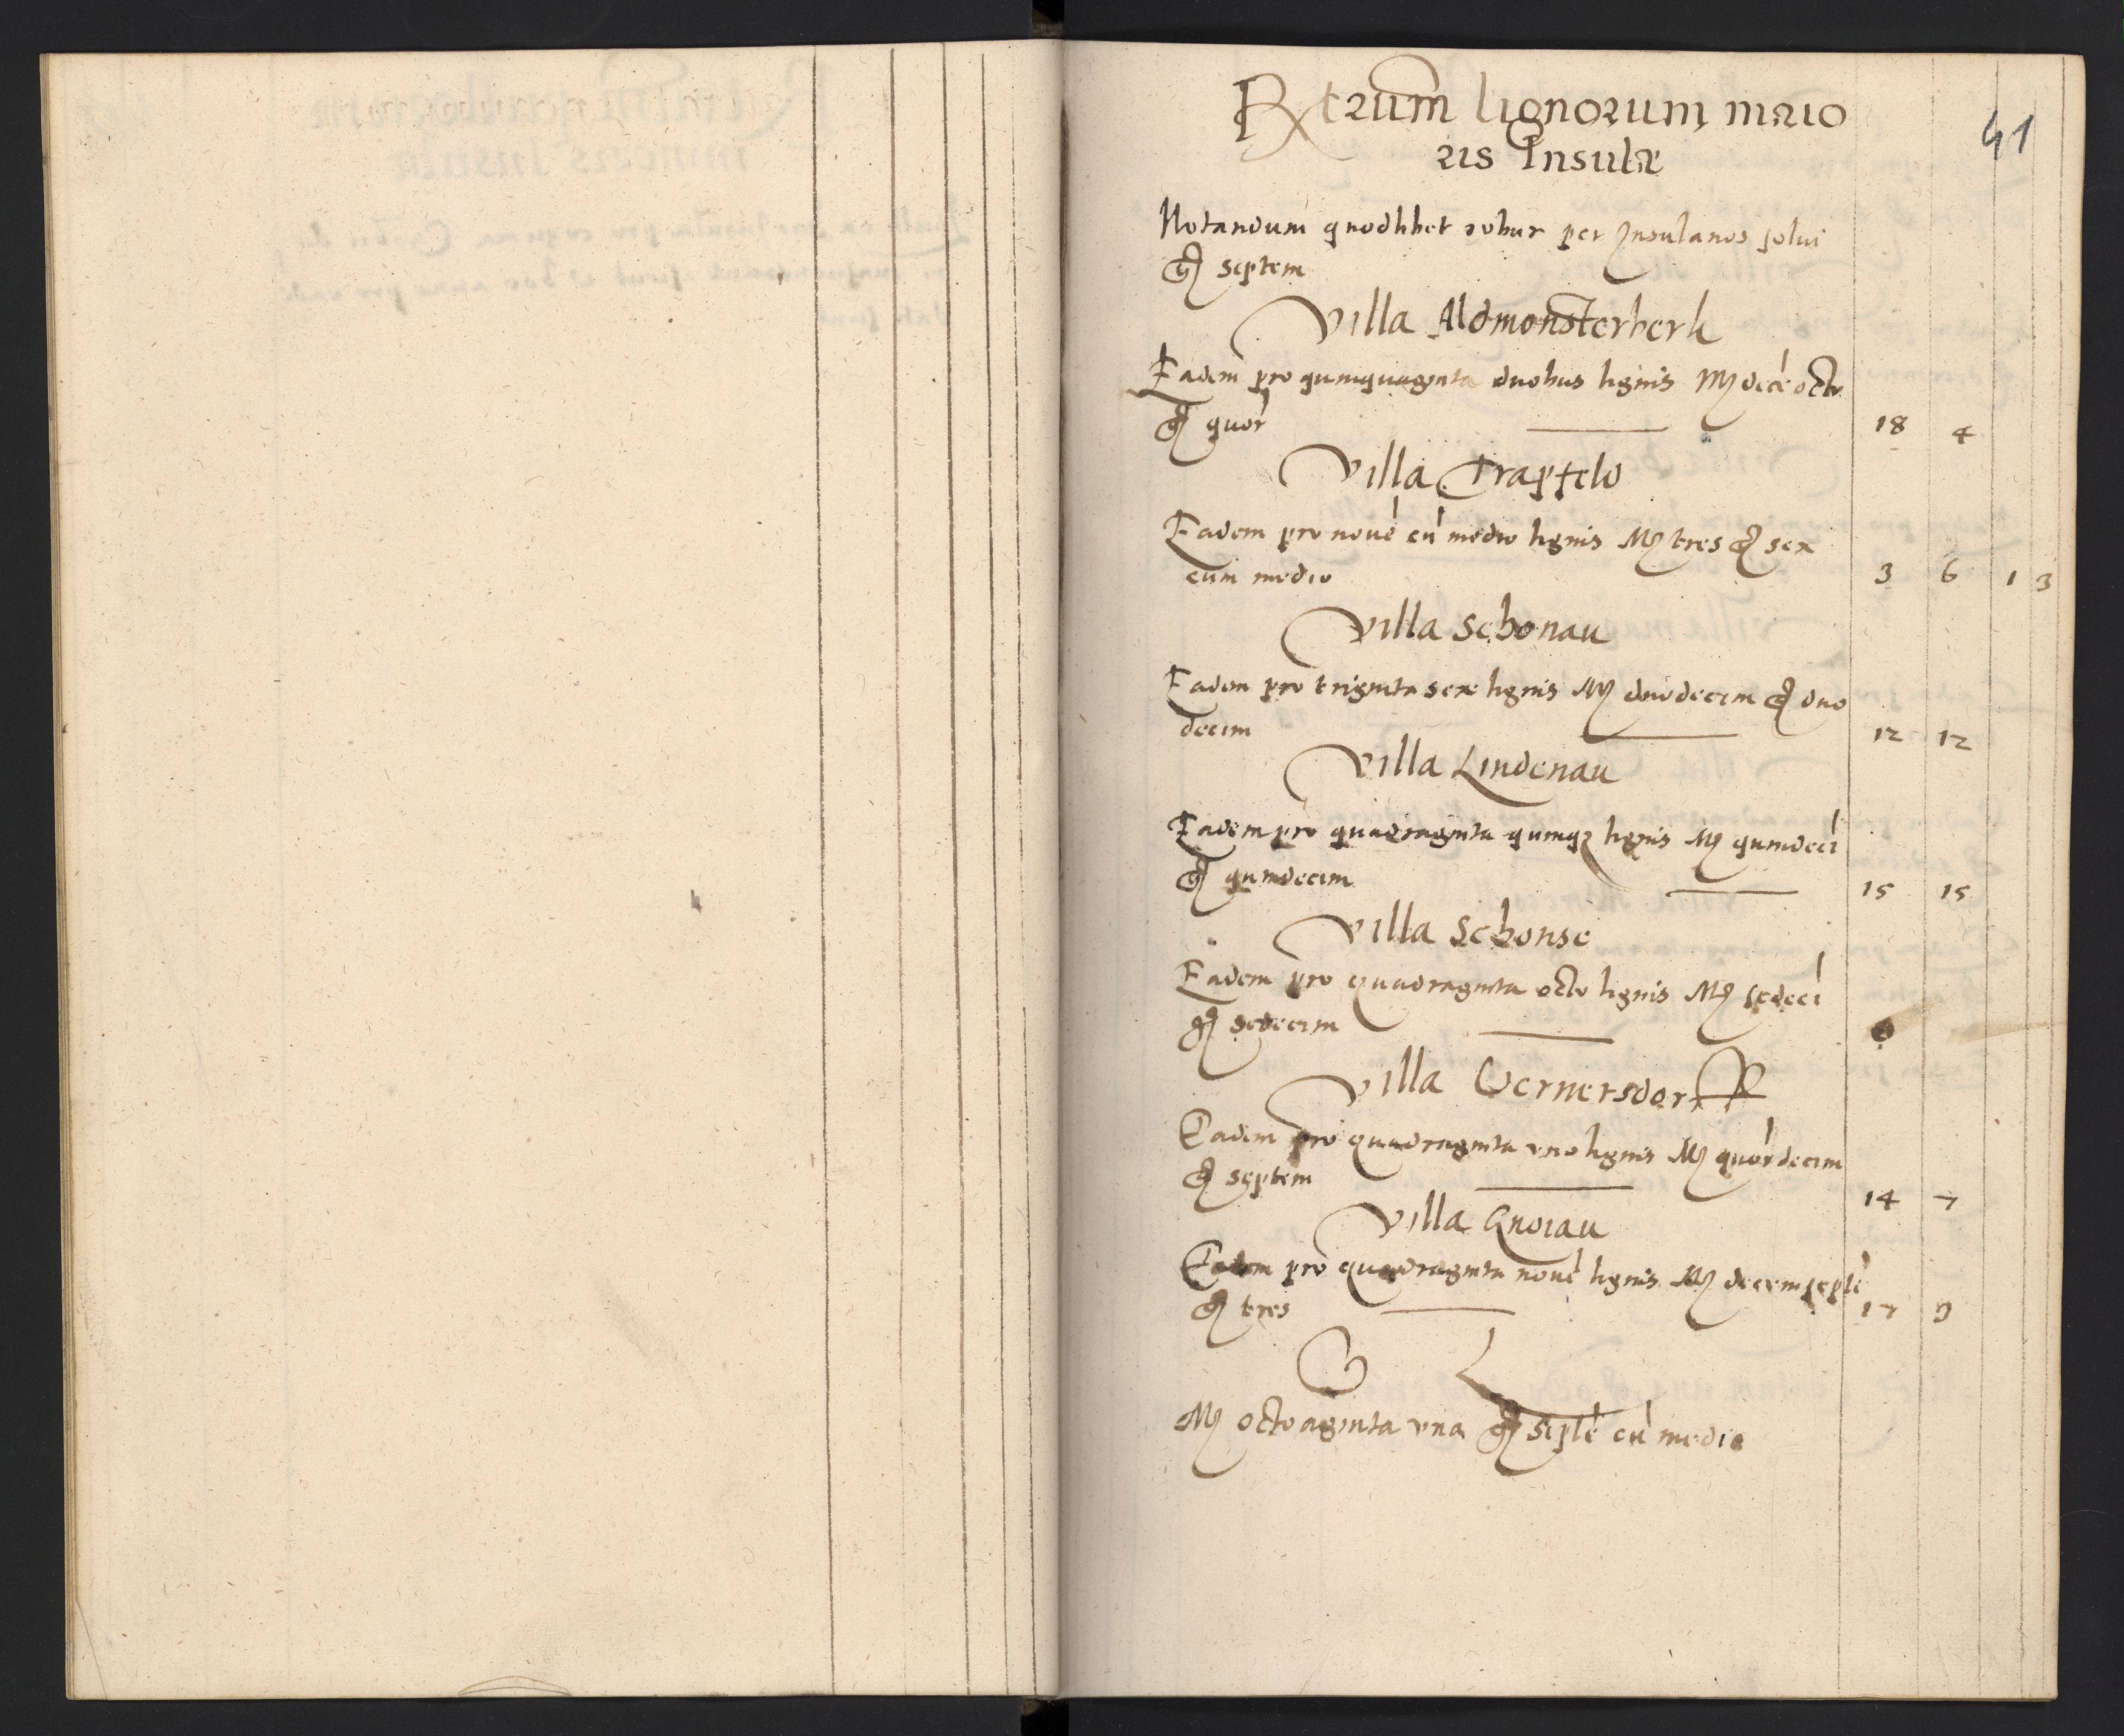 Rxtrum lignorum maio
41
ris Insulæ
Notandum quodlibet robur per Insulanos solui
gr septem
Villa Aldmonsterberk
Eadem pro quinquaginta duobus lignis M decē octo
gr quor 18 4
Villa Trapfelo
Eadem pro novē cū medio lignis M tres gr sex
cum medio 3 6 1 3
Villa Schonau
Eadem pro triginta sex lignis M duodecim gr duo
decim 12 12
Villa Lindenau
Eadem pro quadraginta quinqz lignis M quindecī
gr quindecim 15 15
Villa Schonse
Eadem pro quadraginta octo lignis M sedecī
gr sedecim
Villa Wernersdorff
Eadem pro quadraginta uno lignis M quordecim
gr septem 14 7
Villa Gnoiau
Eadem pro quadraginta novē lignis M decemseptē
gr tres 17 3
M octoaginta una gr septē cū medio